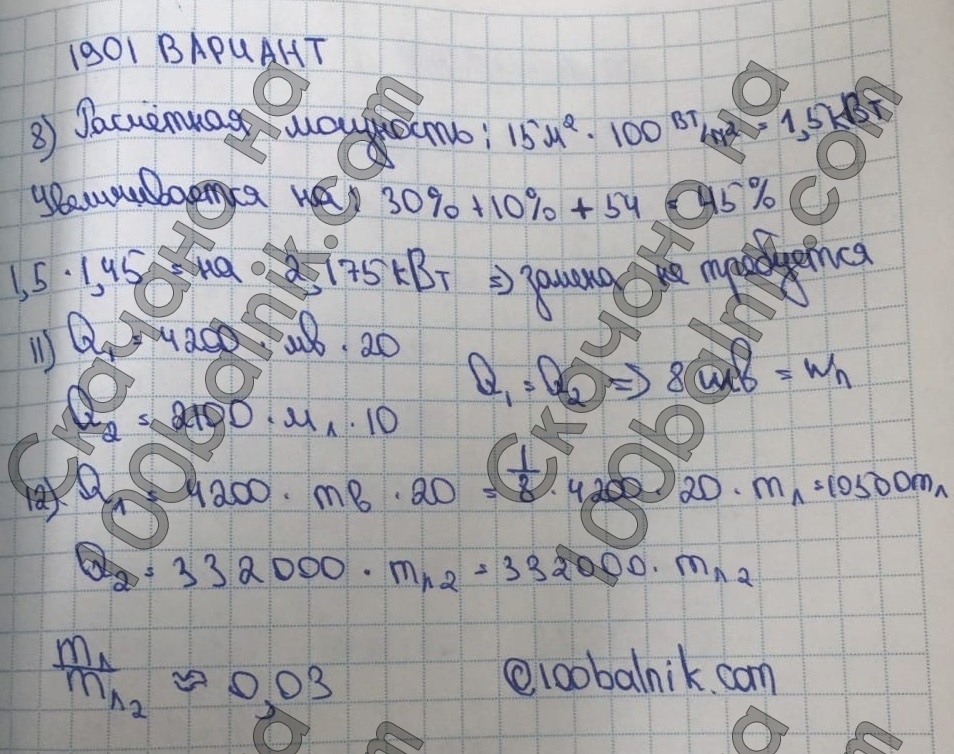 1901 ВАРИАНТ
8) Расчётная мощность: 15м² · 100 Вт/м² = 1,5кВт
Увеличивается на: 30% + 10% + 54 = 45%
1,5 · 1,45 = на 2,175кВт => замена не требуется
11) Q₁ = 4200 · мв · 20
Q₁ = Q₂ => 8 мв = мл
Q₂ = 2100 · мл · 10
12) Q₁ = 4200 · mв · 20 = 1/8 · 4200 · 20 · mл = 10500mл
Q₂ = 332000 · mл2 = 332000 · mл2
mл/mл2 ≈ 0,03
@100balnik.com
Скачано на
100balnik.com
Скачано на
100balnik.com